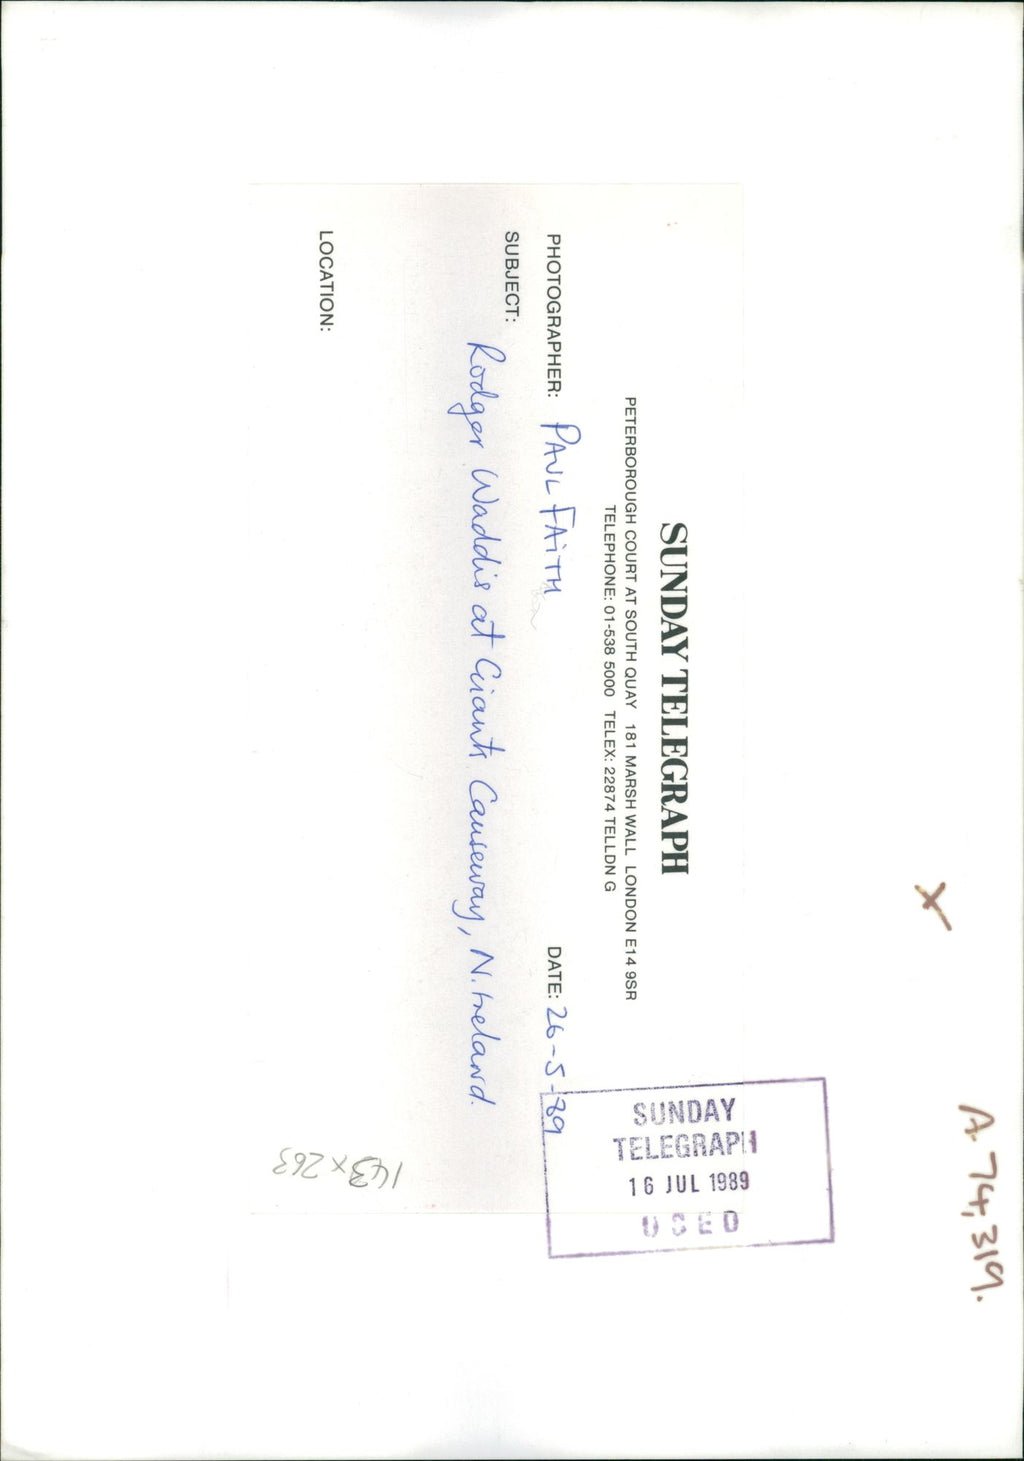 SUNDAY TELEGRAPH
PETERBOROUGH COURT AT SOUTH QUAY 181 MARSH WALL LONDON E14 9SR
TELEPHONE: 01-538 5000 TELEX: 22874 TELLDN G
PHOTOGRAPHER: PAUL FAITH DATE: 26-5-89
SUBJECT:
Rodger Waddis at Giants Causeway, N. Ireland.
LOCATION:
SUNDAY
TELEGRAPH
16 JUL 1989
USED
X
A. 74,319.
143 x 263